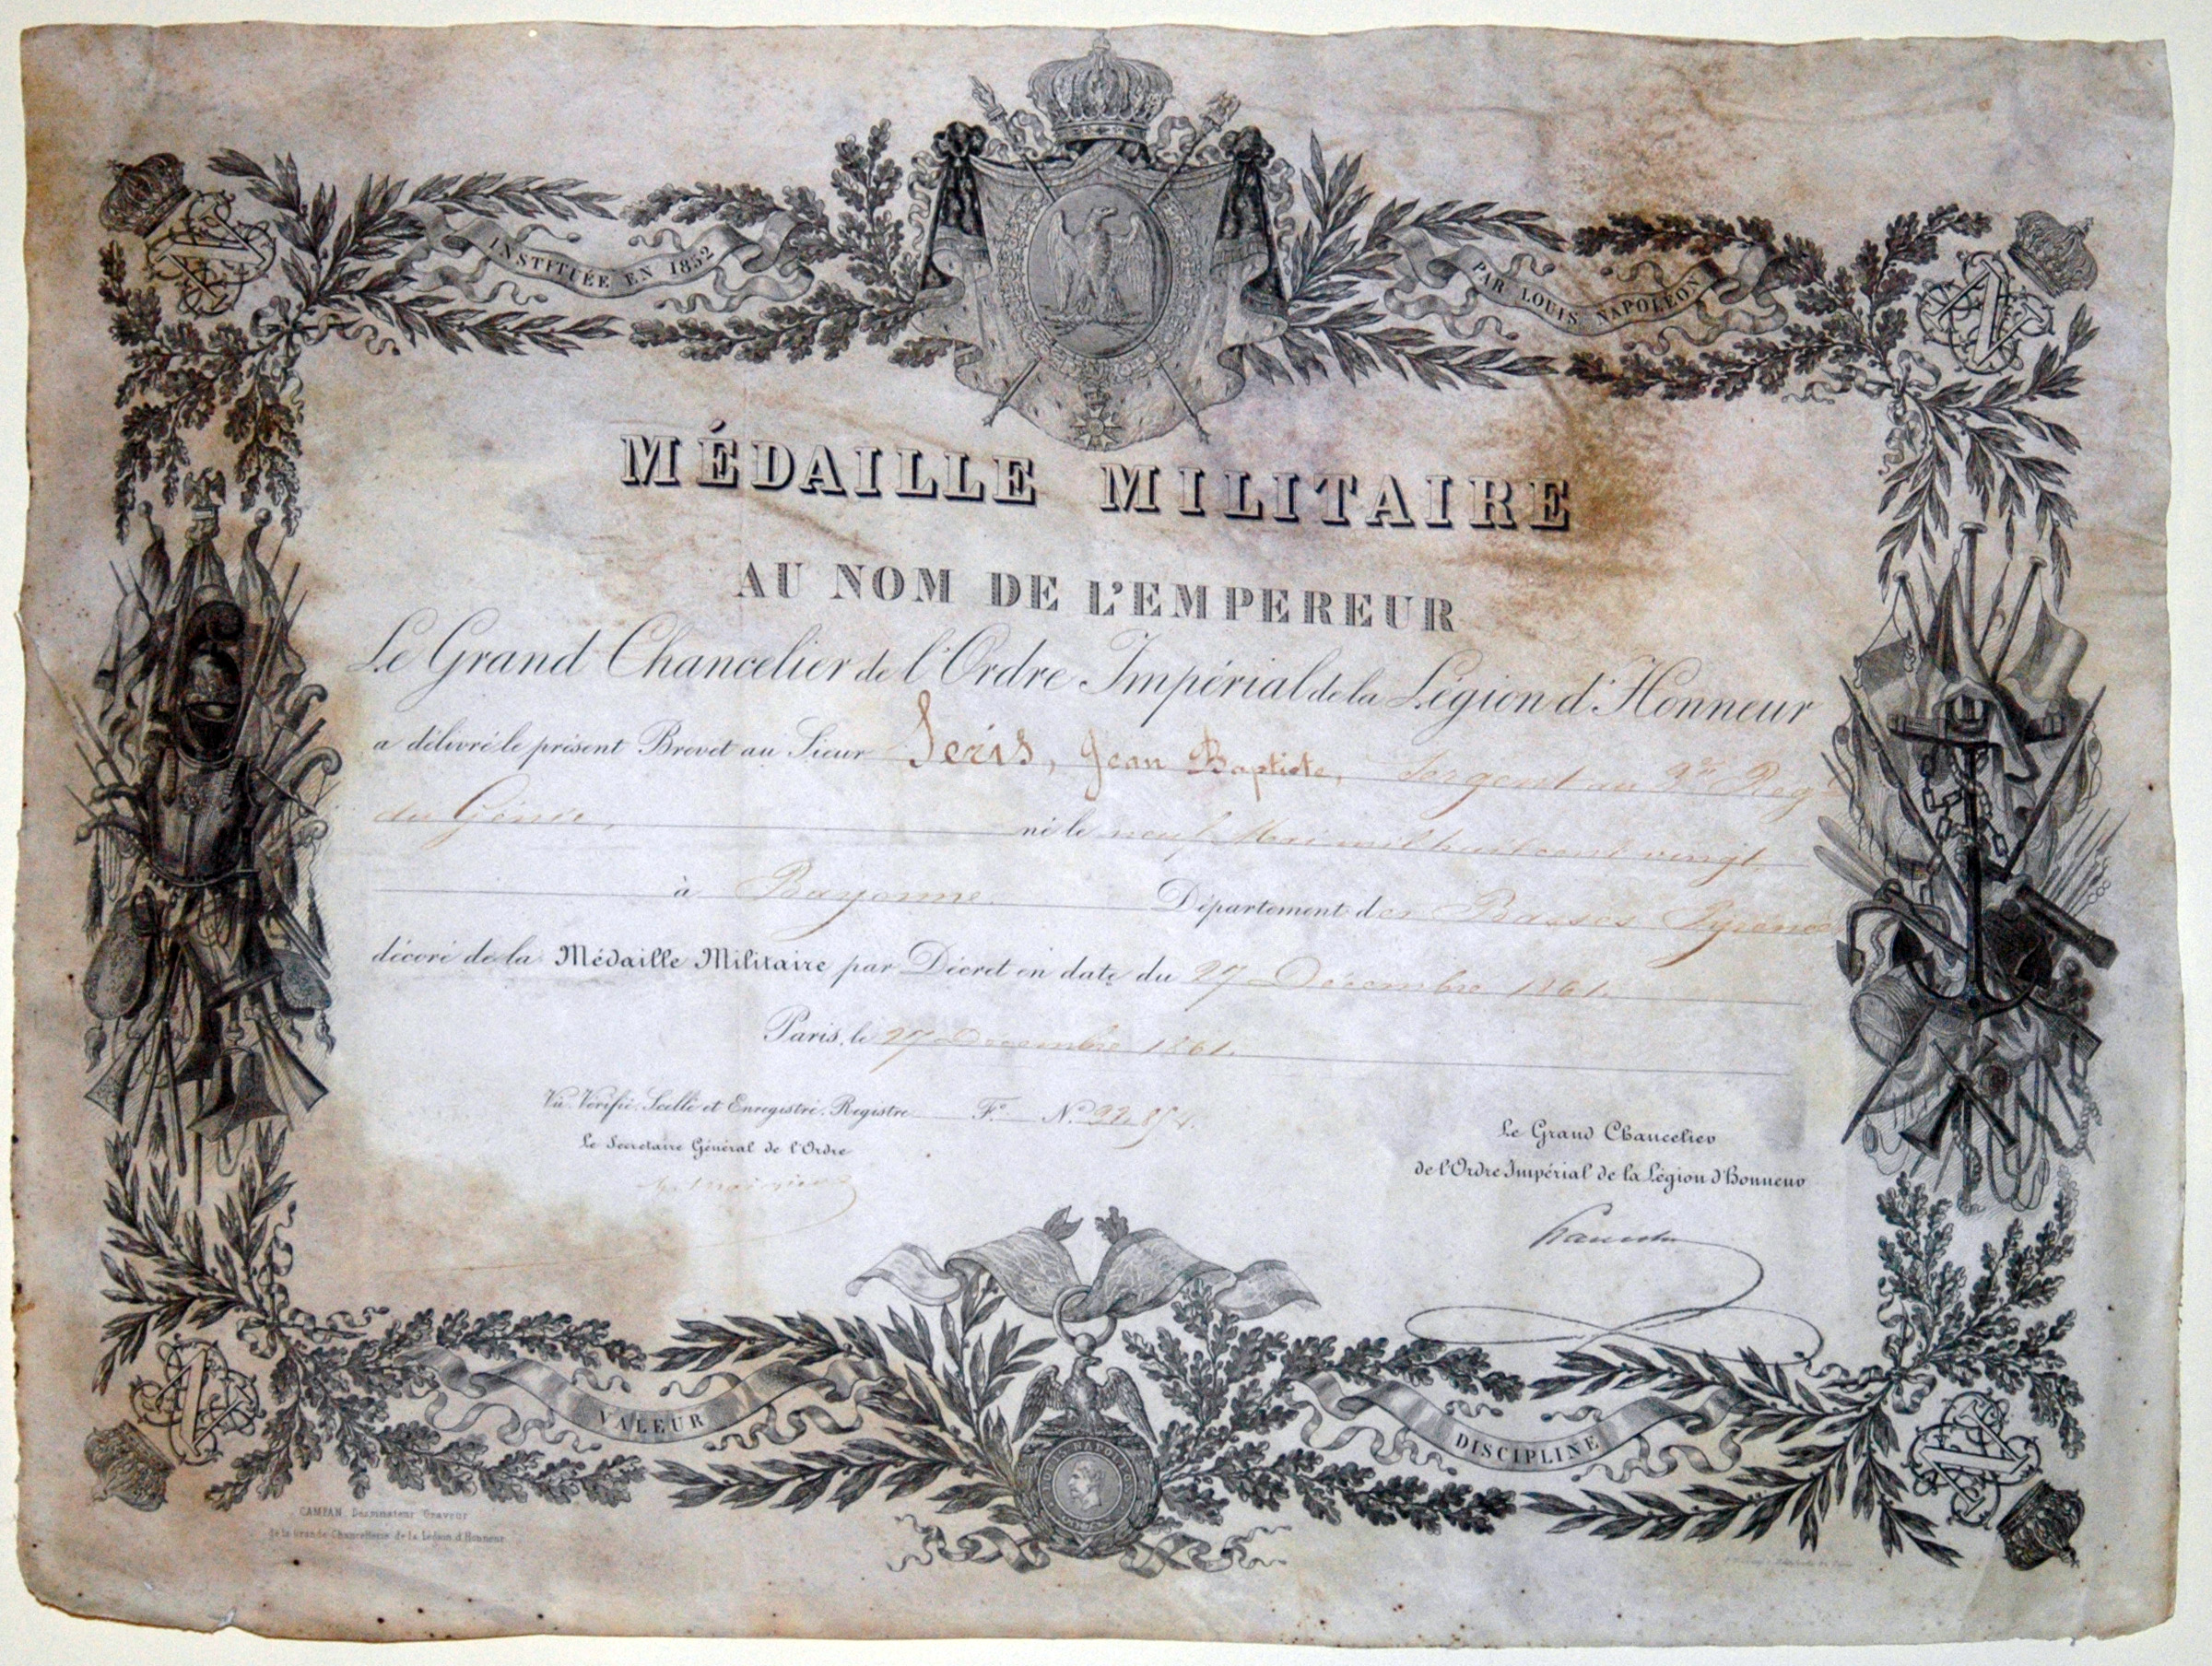 INSTITUÉE EN 1852
PAR LOUIS NAPOLÉON
MÉDAILLE MILITAIRE
AU NOM DE L'EMPEREUR
Le Grand Chancelier de l'Ordre Impérial de la Légion d'Honneur
a délivré le présent Brevet au Sieur Seris, Jean Baptiste, Sergent au 2e Reg
du Génie, né le neuf Mai mil huit cent vingt
à Bayonne Département des Basses Pyrénées
décoré de la Médaille Militaire par Décret en date du 27 Décembre 1861.
Paris, le 27 Décembre 1861.
Vu, Vérifié, Scellé et Enregistré, Registre F° N°
Le Secrétaire Général de l'Ordre
Le Grand Chancelier
de l'Ordre Impérial de la Légion d'Honneur
VALEUR
DISCIPLINE
LOUIS NAPOLEON
CAMPAN, Dessinateur Graveur
de la Grande Chancellerie de la Légion d'Honneur